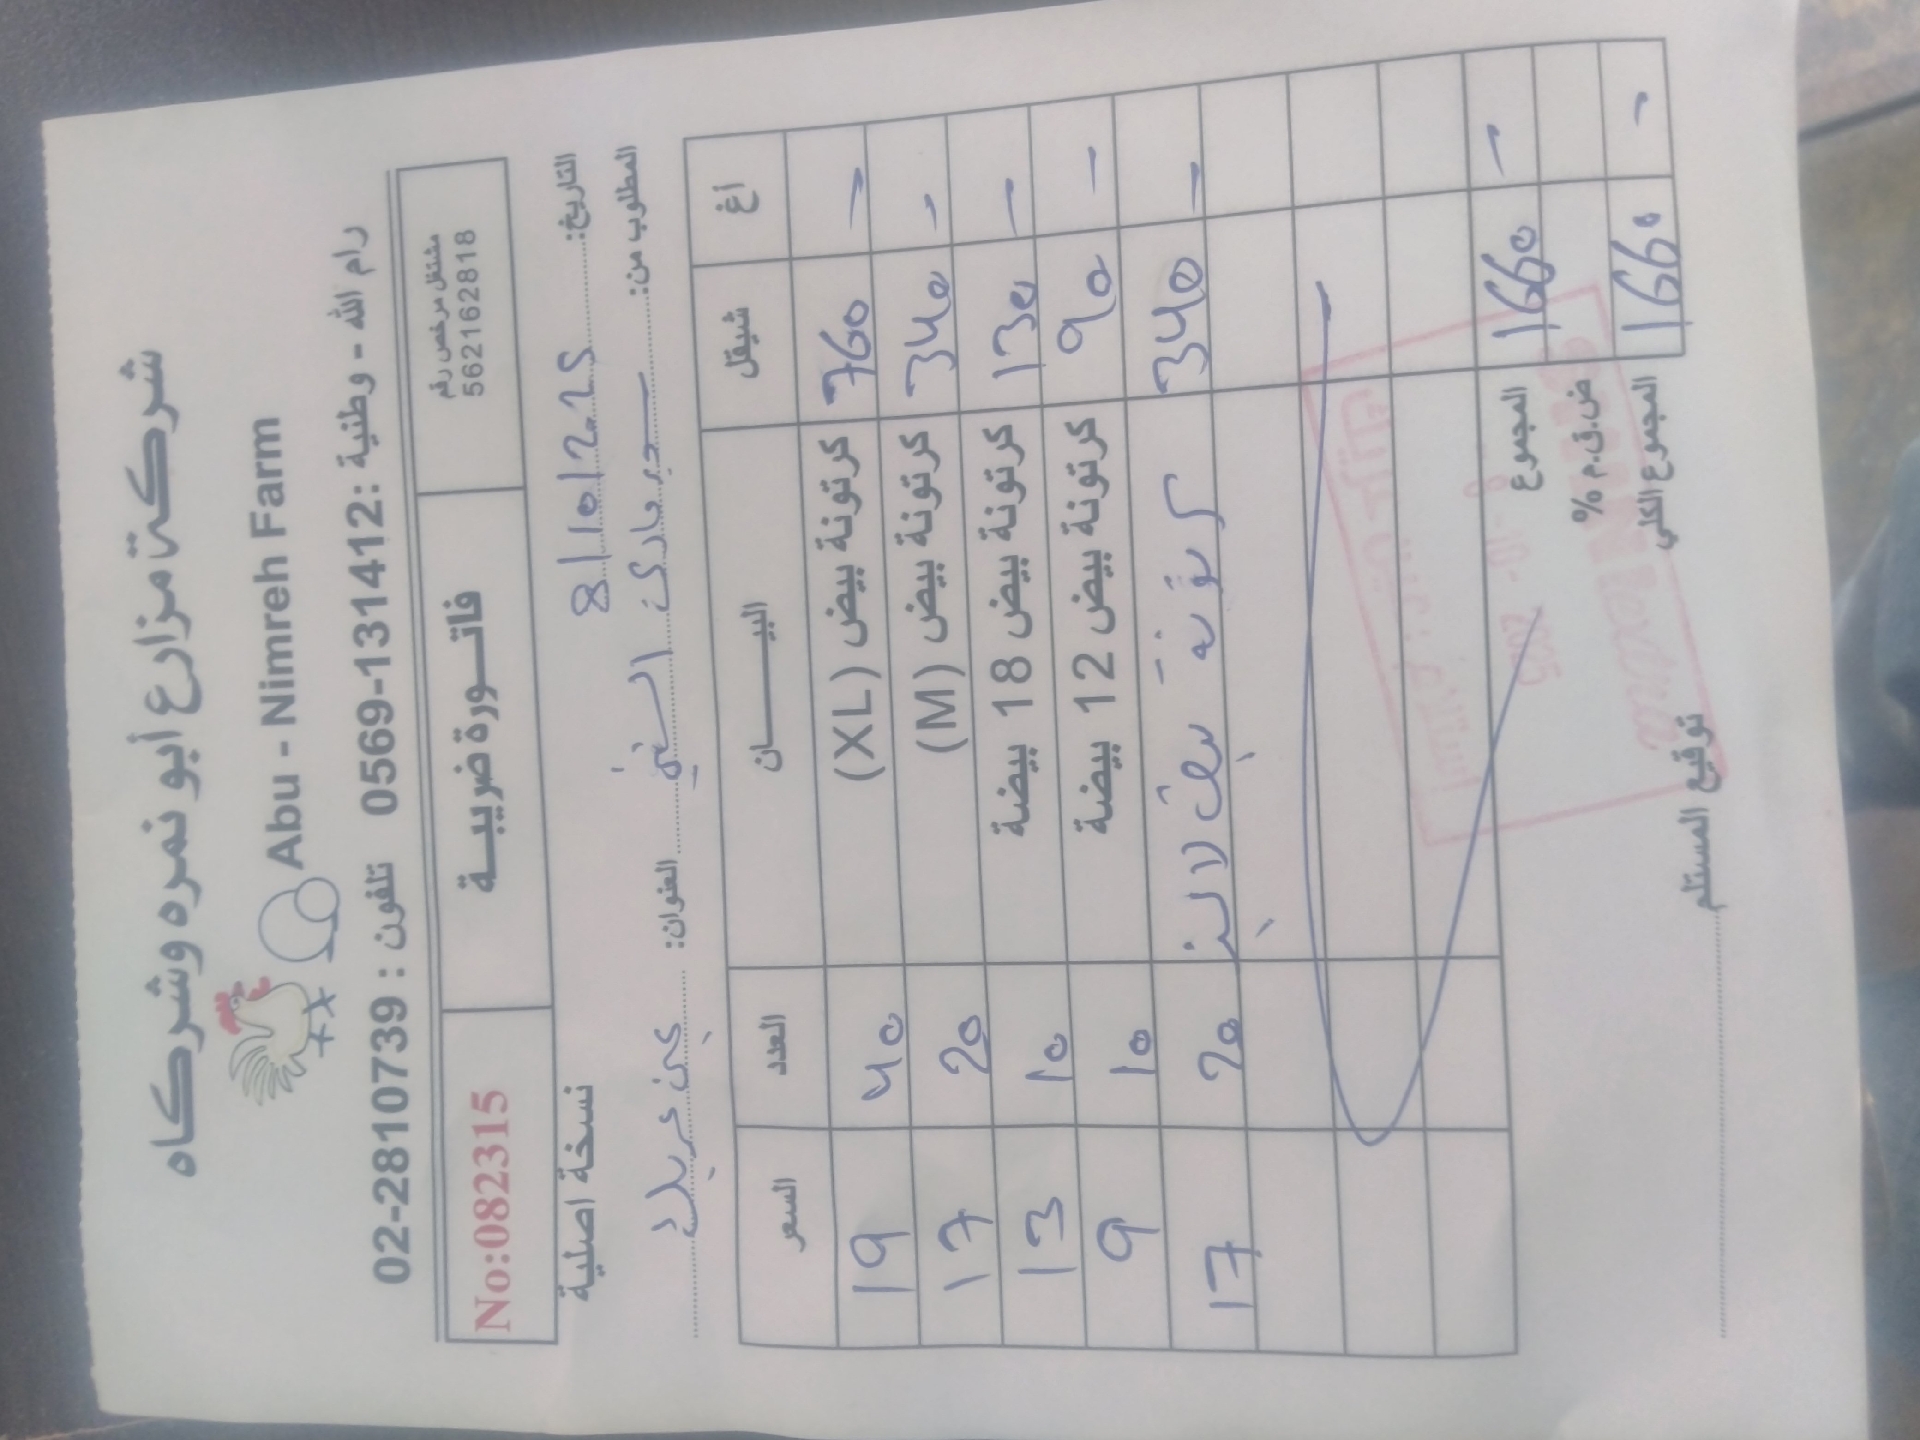 شركة مزارع أبو نمره وشركاه
Abu - Nimreh Farm
رام الله - وطنية : 0569-131412 تلفون : 02-2810739
مشتغل مرخص رقم
562162818
فاتورة ضريبة
No:082315
التاريخ: 8/10/2025
نسخة اصلية
المطلوب من: العنوان:
أغ شيقل البيان العدد السعر
- 760 كرتونة بيض (XL) 40 19
- 340 كرتونة بيض (M) 20 17
- 130 كرتونة بيض 18 بيضة 10 13
- 90 كرتونة بيض 12 بيضة 10 9
- 340 كرتونة 20 17
- 1660 المجموع
ض.ق.م %
- 1660 المجموع الكلي
توقيع المستلم